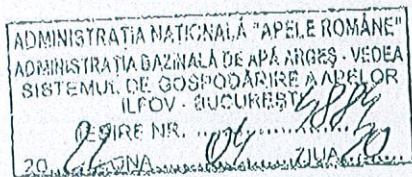 ADMINISTRAȚIA NAȚIONALĂ "APELE ROMÂNE"
ADMINISTRAȚIA BAZINALĂ DE APĂ ARGEȘ - VEDEA
SISTEMUL DE GOSPODĂRIRE A APELOR
ILFOV - BUCUREȘTI
IEȘIRE NR. ........ 4884
20 22 LUNA 04 ZIUA 20